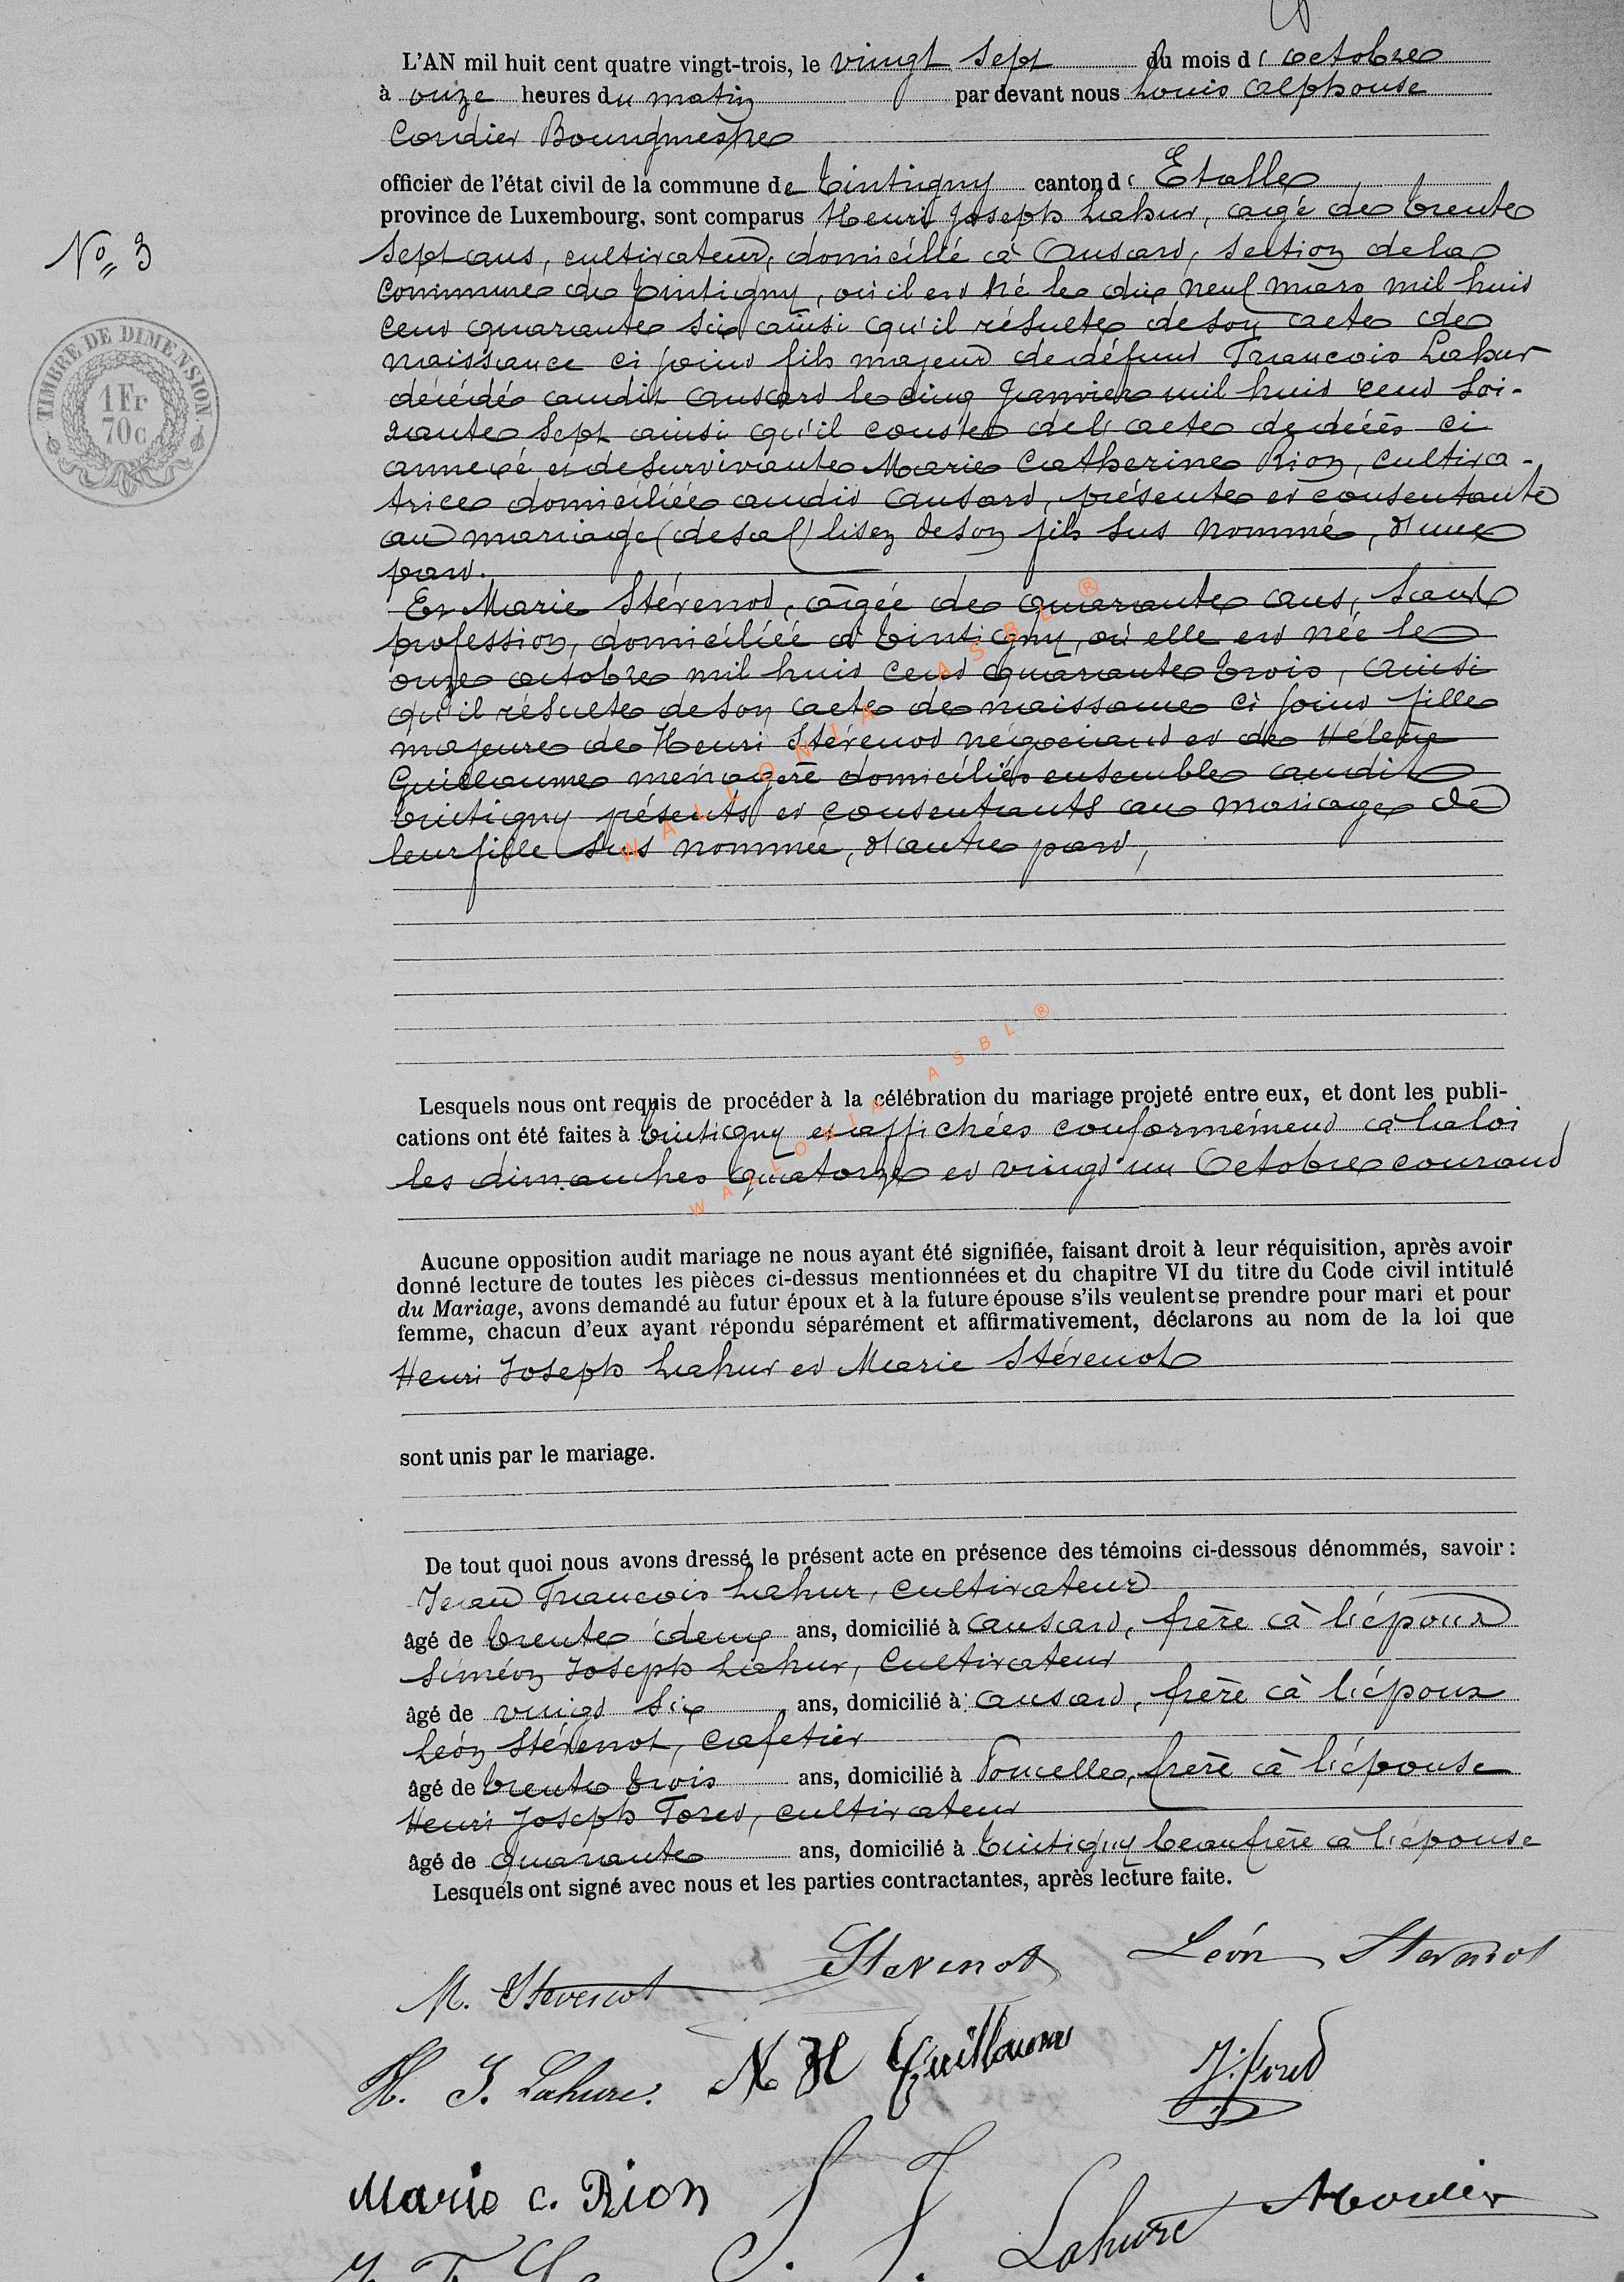 L'AN mil huit cent quatre vingt-trois, le vingt sept du mois d' octobre
à onze heures du matin par devant nous Louis Alphonse
Cordier Bourgmestre
officier de l'état civil de la commune de Tintigny canton d' Etalle
province de Luxembourg, sont comparus Henri Joseph Lahur, âgé de trente
sept ans, cultivateur, domicilié à Ansart, section de la
commune de Tintigny, où il est né le dix neuf mars mil huit
cent quarante six ainsi qu'il résulte de son acte de
naissance ci joint fils majeur de défunt Francois Lahur
décédé audit Ansart le cinq Janvier mil huit cent soi-
xante sept ainsi qu'il conste de l'acte de décès ci
annexé et de survivante Marie Catherine Rion, cultiva-
trice domiciliée audit Ansart, présente et consentante
au mariage (de sa f) lisez de son fils sus nommé, d'une
part.
Et Marie Stévenot, âgée de quarante ans, sans
profession, domiciliée à Tintigny, où elle est née le
onze octobre mil huit cent quarante trois, ainsi
qu'il résulte de son acte de naissance ci joint fille
majeure de Henri Stévenot négociant et de Hélène
Guillaume ménagère domiciliés ensemble audit
Tintigny présents et consentants au mariage de
leur fille sus nommée, d'autre part,
Lesquels nous ont requis de procéder à la célébration du mariage projeté entre eux, et dont les publi-
cations ont été faites à Tintigny et affichées conformément à la loi
les dimanches quatorze et vingt un Octobre courant
Aucune opposition audit mariage ne nous ayant été signifiée, faisant droit à leur réquisition, après avoir
donné lecture de toutes les pièces ci-dessus mentionnées et du chapitre VI du titre du Code civil intitulé
du Mariage, avons demandé au futur époux et à la future épouse s'ils veulent se prendre pour mari et pour
femme, chacun d'eux ayant répondu séparément et affirmativement, déclarons au nom de la loi que
Henri Joseph Lahur et Marie Stévenot
sont unis par le mariage.
De tout quoi nous avons dressé le présent acte en présence des témoins ci-dessous dénommés, savoir :
Jean Francois Lahur, cultivateur
âgé de trente deux ans, domicilié à Ansart, frère à l'époux
Siméon Joseph Lahur, Cultivateur
âgé de vingt six ans, domicilié à Ansart, frère à l'époux
Léon Stévenot, cafetier
âgé de trente trois ans, domicilié à Poncelle, frère à l'épouse
Henri Joseph Foret, cultivateur
âgé de quarante ans, domicilié à Tintigny beau frère à l'épouse
Lesquels ont signé avec nous et les parties contractantes, après lecture faite.
M. Stevenot Stevenot Léon Stevenot
H. J. Lahure. M H Guillaume
Marie C. Rion S. J. Lahure
No 3
TIMBRE DE DIMENSION
1 Fr
70c
WALLONIA ASBL ®
WALLONIA ASBL ®